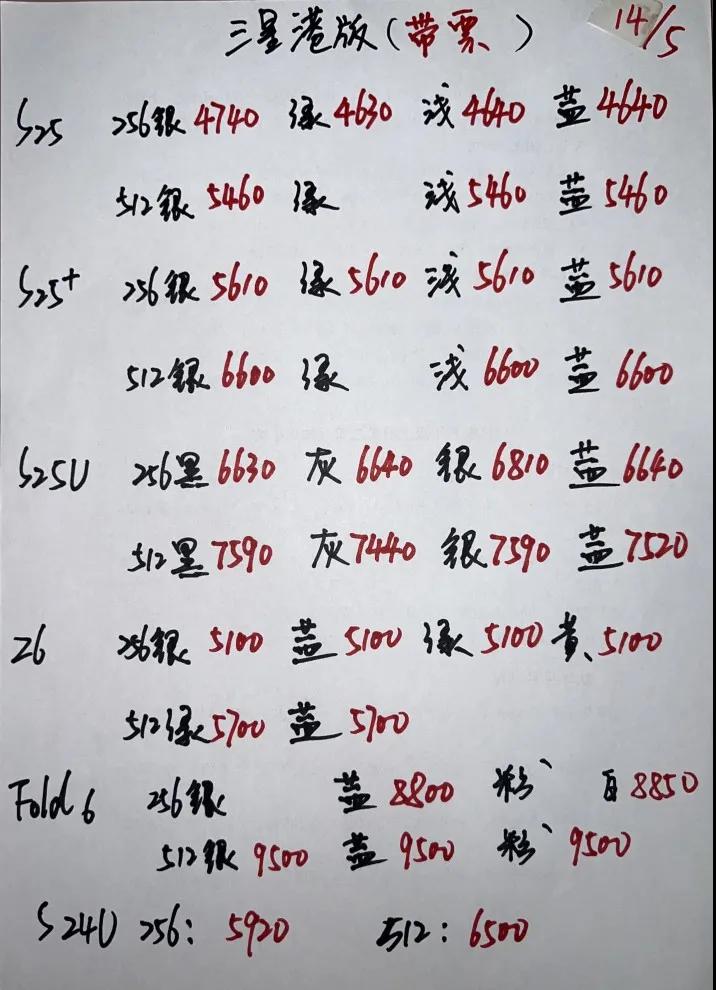 三星港版(带票) 14/5
S25 256银4740 绿4630 浅4640 蓝4640
512银5460 绿 浅5460 蓝5460
S25+ 256银5610 绿5610 浅5610 蓝5610
512银6600 绿 浅6600 蓝6600
S25U 256黑6630 灰6640 银6810 蓝6640
512黑7590 灰7440 银7590 蓝7520
Z6 256银5100 蓝5100 绿5100 黄5100
512绿5700 蓝5700
Fold6 256银 蓝8800 粉 白8850
512银9500 蓝9500 粉9500
S24U 256: 5920 512: 6500